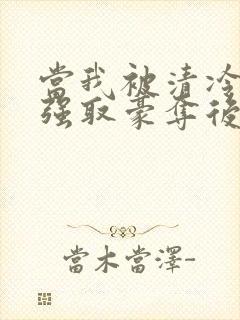 當我被清冷
強取豪奪後
當木當澤-